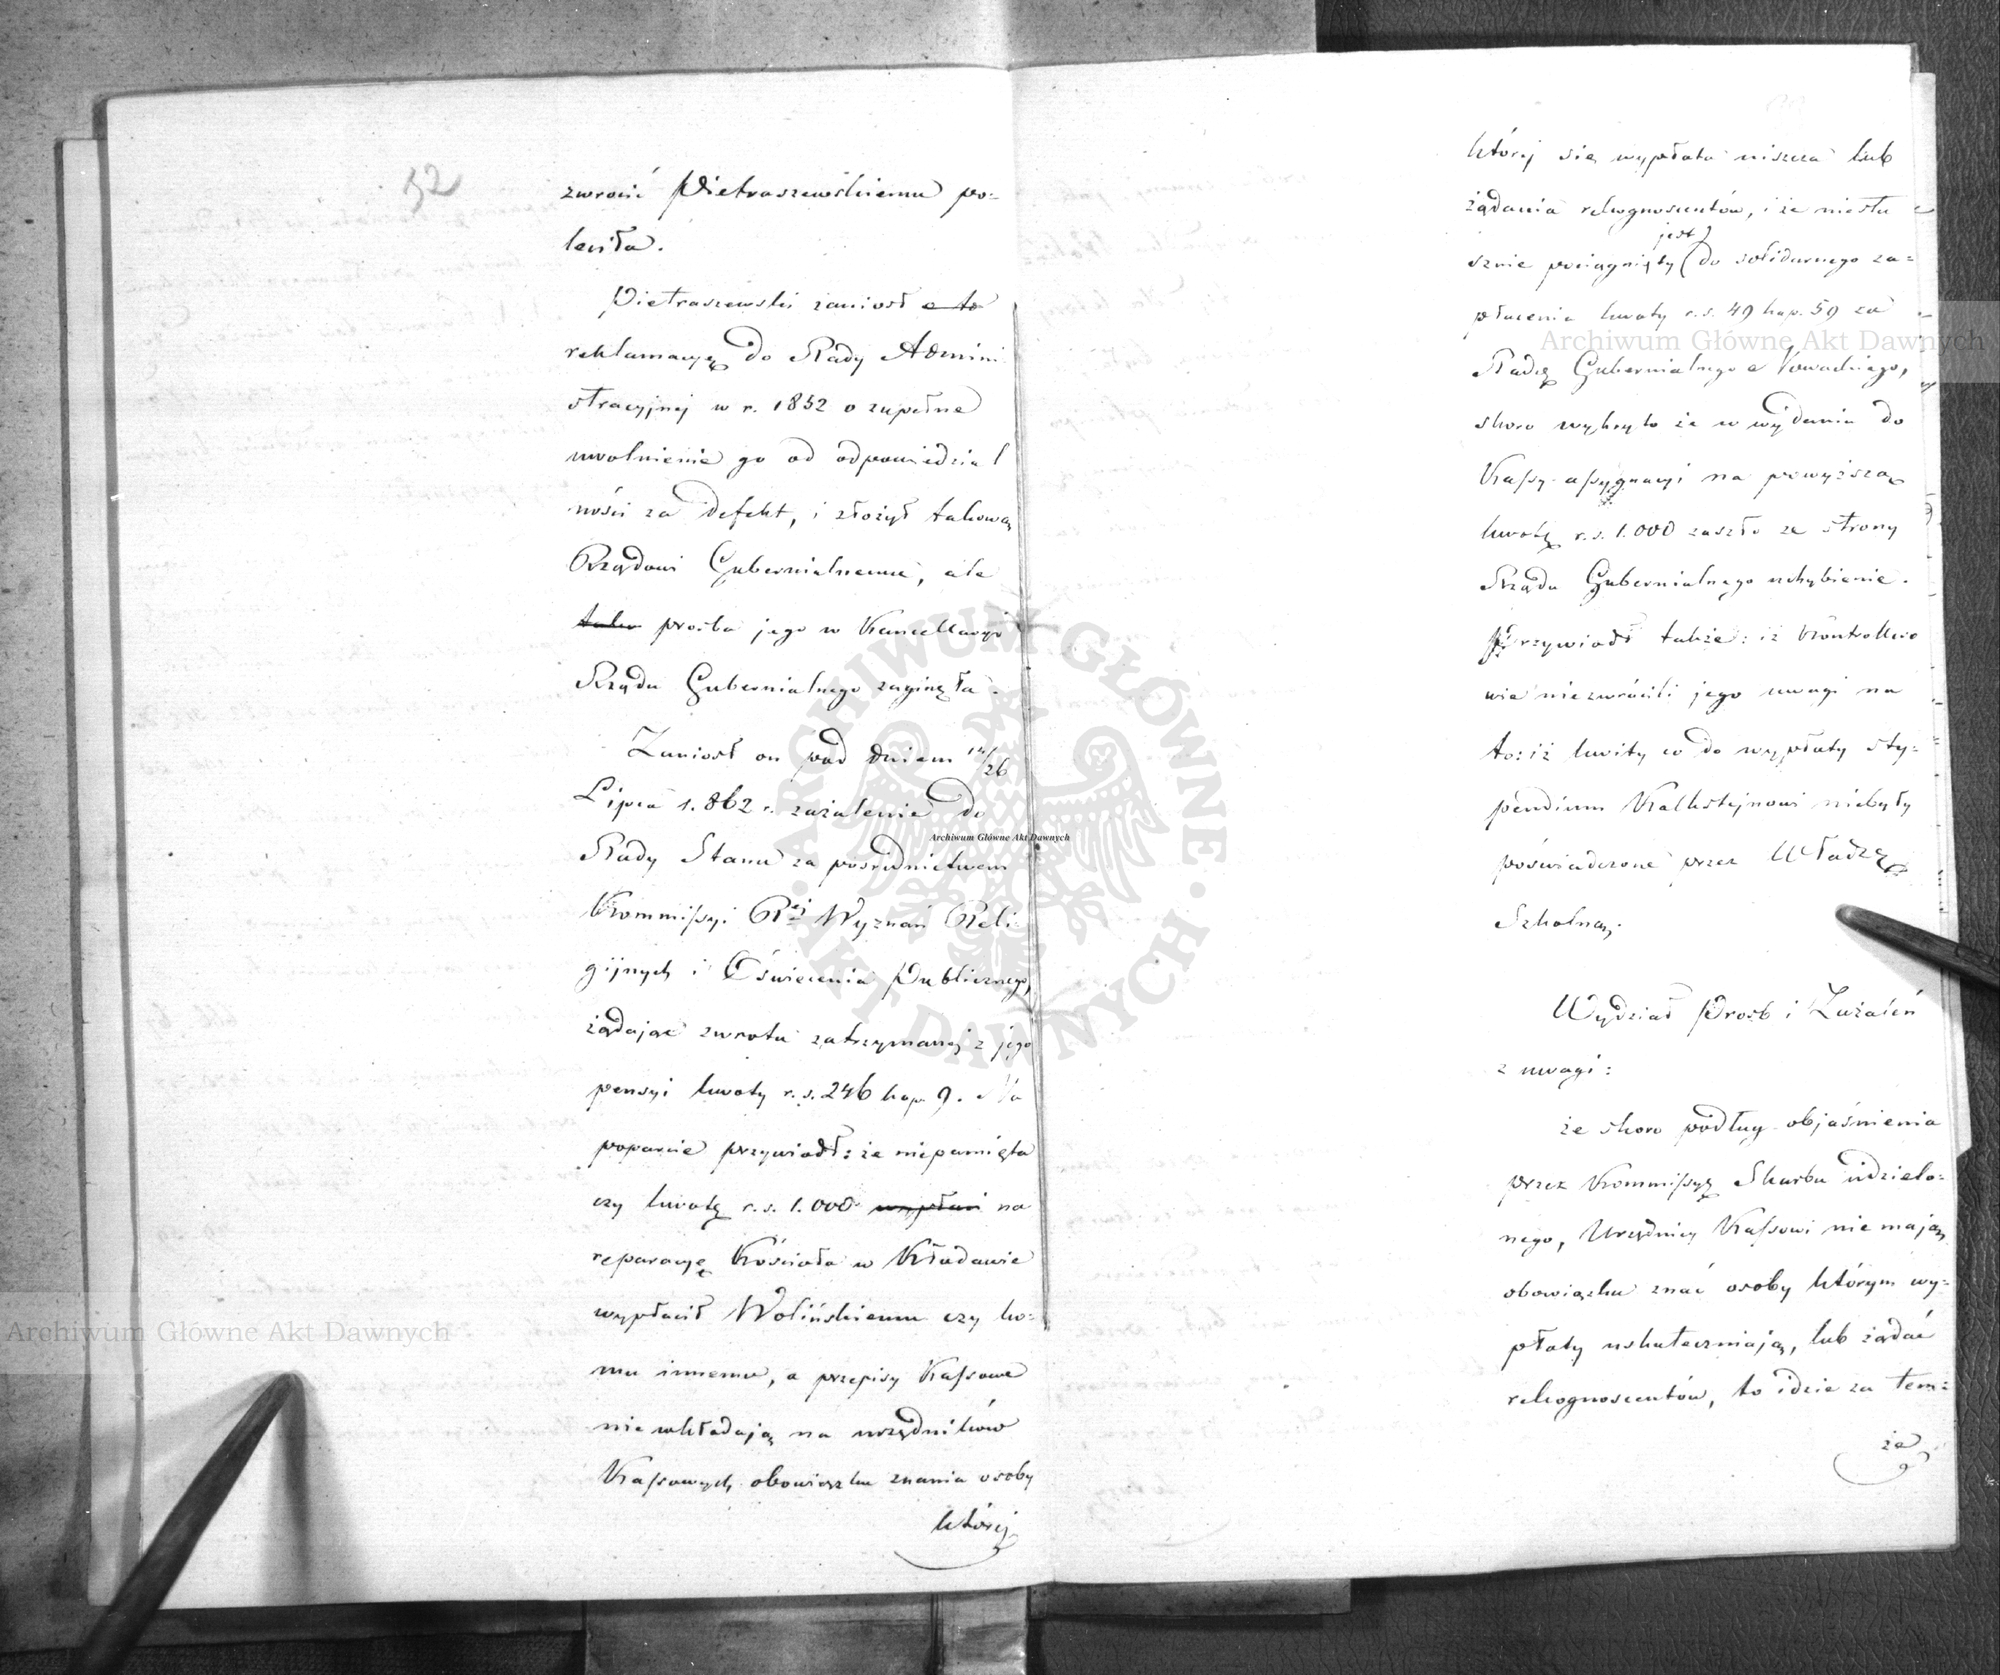 52
zwrócić Pietraszewskiemu po=
leciła.
Pietraszewski zaniosł o to
reklamacyę do Rady Admini
stracyjnej w r. 1852 o zupełne
uwolnienie go od odpowiedzial
ności za defekt, i złożył takową
Rządowi Gubernialnemu, ale
taka prośba jego w Kancellaryi
Rządu Gubernialnego zaginęła.
Zaniosł on pod dniem 14/26
Lipca 1.862 r. zażalenie do
Rady Stanu za pośrednictwem
Kommissyi Rej Wyznań Reli=
gijnych i Oświecenia Publicznego,
żądając zwrotu zatrzymanej z jego
pensyi kwoty r.s. 246 kop. 9. Na
poparcie przywiódł: że niepamięta
czy kwotę r.s. 1.000 wypłaci na
reparacyę Kościoła w Kłodawie
wypłacił Wolińskiemu czy ko=
mu innemu, a przepisy Kassowe
nie wkładają na urzędników
Kassowych obowiązku znania osoby
której
której się wypłata uiszcza lub
żądania rekognoscentów, i że niesłu
sznie pociągnięty jest do solidarnego za=
płacenia kwoty r.s. 49 kop. 59 za
Radcę Gubernialnego Nowackiego,
skoro wykryto że w wydaniu do
Kassy assygnacyi na powyższą
kwotę r.s. 1.000 zaszło ze strony
Rządu Gubernialnego uchybienie.
Przywiódł także: iż Kontrollero
wie niezwrócili jego uwagi na
to: iż kwity co do wypłaty sty=
pendium Kalksteinowi niebyły
poświadczone przez Władzę
Szkolną.
Wydział Prosb i Zażaleń
z uwagi:
że skoro podług objaśnienia
przez Kommissyę Skarbu udzielo=
nego, Urzędnicy Kassowi nie mają
obowiązku znać osoby którym wy=
płaty uskuteczniają, lub żądać
rekognoscentów, to idzie za tem:
że
Archiwum Główne Akt Dawnych
Archiwum Główne Akt Dawnych
Archiwum Główne Akt Dawnych
ARCHIWUM GŁÓWNE · AKT DAWNYCH ·